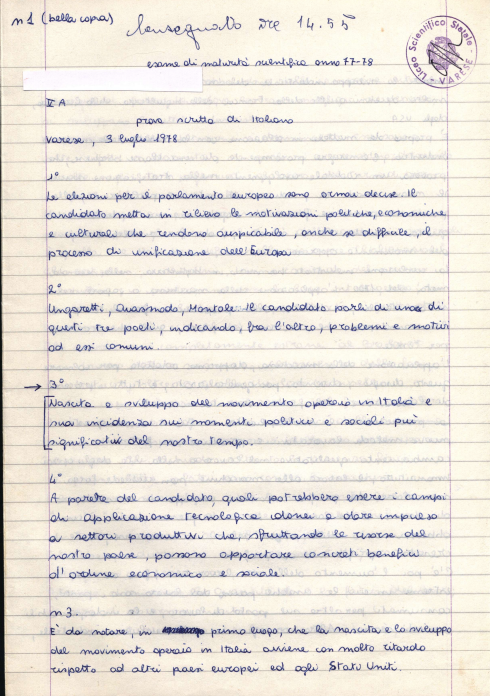 n 1 (bella copia)
Consegnato ore 14.55
Liceo Scientifico Statale - VARESE -
esame di maturità scientifica anno 77-78
V A
prova scritta di Italiano
Varese, 3 luglio 1978
1°
Le elezioni per il parlamento europeo sono ormai decise. Il
candidato metta in rilievo le motivazioni politiche, economiche
e culturali che rendono auspicabile, anche se difficile, il
processo di unificazione dell'Europa
2°
Ungaretti, Quasimodo, Montale. Il candidato parli di uno di
questi tre poeti, indicando, fra l'altro, problemi e motivi
ad essi comuni.
→ 3°
Nascita e sviluppo del movimento operaio in Italia e
sua incidenza sui momenti politici e sociali più
significativi del nostro tempo.
4°
A parere del candidato, quali potrebbero essere i campi
di applicazione tecnologica idonei a dare impulso
a settori produttivi che, sfruttando le risorse del
nostro paese, possono apportare concreti benefici
d'ordine economico e sociale.
n 3.
E' da notare, in primo luogo, che la nascita e lo sviluppo
del movimento operaio in Italia avviene con molto ritardo
rispetto ad altri paesi europei ed agli Stati Uniti.